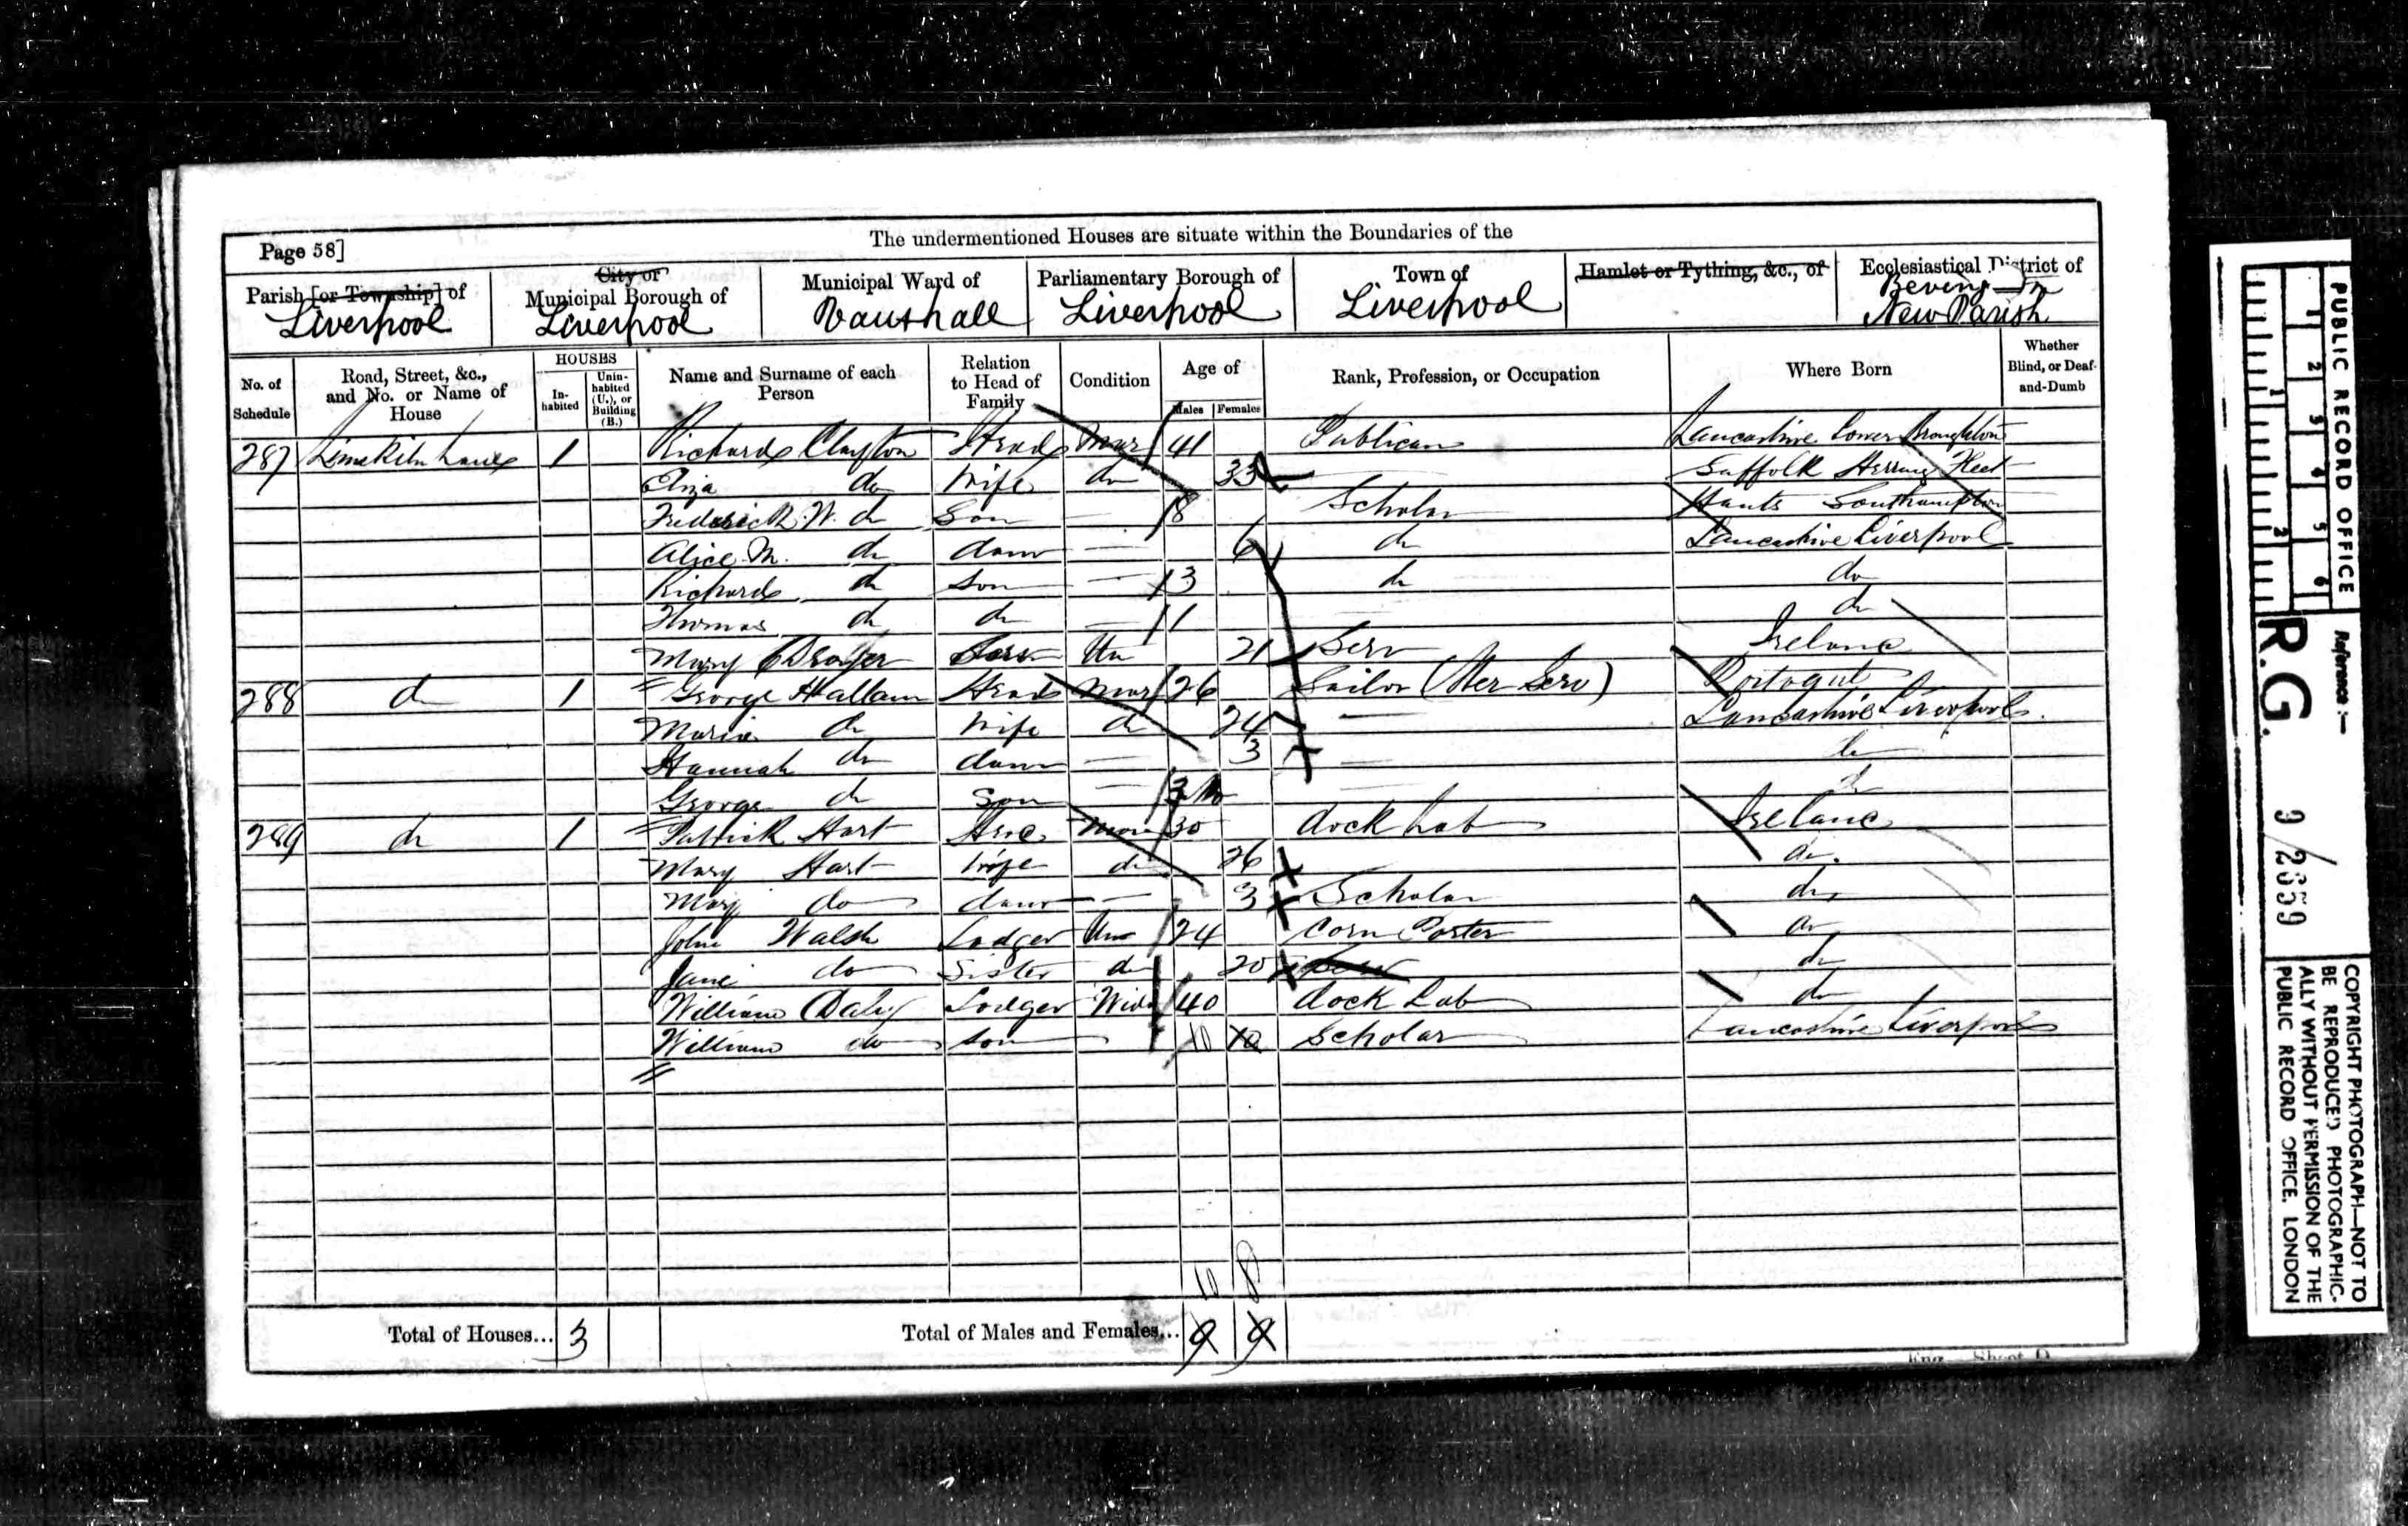 Page 58]
The undermentioned Houses are situate within the Boundaries of the
Parish [or Township] of
Liverpool
City or
Municipal Borough of
Liverpool
Municipal Ward of
Vauxhall
Parliamentary Borough of
Liverpool
Town of
Liverpool
Hamlet or Tything, &c., of
Ecclesiastical District of
New Parish
No. of Schedule
Road, Street, &c., and No. or Name of House
HOUSES
Inhabited
Uninhabited (U.), or Building (B.)
Name and Surname of each Person
Relation to Head of Family
Condition
Age of
Males Females
Rank, Profession, or Occupation
Where Born
Whether Blind, or Deaf-and-Dumb
287 Limekiln Lane 1 Richard Clayton Head Mar 41 Publican Lancashire Lower Broughton
Eliza do Wife do 33 Suffolk Herring Fleet
Frederick W. do Son — 8 Scholar Hants Southampton
Alice M. do daur — 6 do Lancashire Liverpool
Richard do Son — 3 do do
Thomas do do — 1 do
Mary Serv Un 21 Serv Ireland
288 do 1 George Hallam Head Mar 26 Sailor (Mer Serv)
Maria do Wife do 24 — Lancashire Liverpool
Hannah do daur — 3 — do
George do Son — 3 do
289 do 1 Patrick Hart Head Mar 30 dock Lab Ireland
Mary Hart Wife do 26 do
Mary do daur — 3 Scholar do
John Walsh Lodger Un 24 Corn Porter do
Jane do Sister do 20 do
William Daly Lodger Wid 40 dock Lab do
William do Son 10 10 Scholar Lancashire Liverpool
10 8
Total of Houses... 3
Total of Males and Females... 9 9
Eng.—Sheet D.
PUBLIC RECORD OFFICE
1 2 3 4 5 6
1 2
Reference :—
R.G. 9/2659
COPYRIGHT PHOTOGRAPH—NOT TO
BE REPRODUCED PHOTOGRAPHIC-
ALLY WITHOUT PERMISSION OF THE
PUBLIC RECORD OFFICE, LONDON